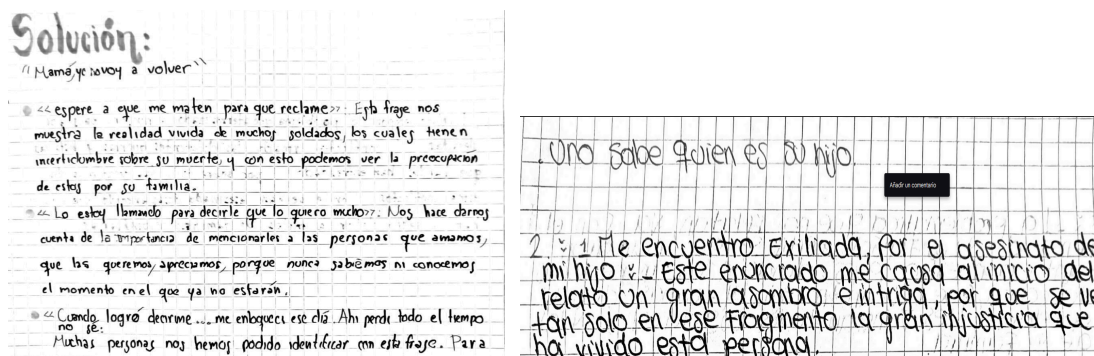 Solución:
"Mamá, yo no voy a volver"
<< espere a que me maten para que reclame>>: Esta frase nos
muestra la realidad vivida de muchos soldados, los cuales tienen
incertidumbre sobre su muerte, y con esto podemos ver la preocupación
de estos por su familia.
<< Lo estoy llamando para decirle que lo quiero mucho>>: Nos hace darnos
cuenta de la importancia de mencionarles a las personas que amamos,
que las queremos, apreciamos, porque nunca sabemos ni conocemos
el momento en el que ya no estaran.
<< Cuando logró decirme... me enloquecí ese día. Ahí perdí todo el tiempo
no sé:
Muchas personas nos hemos podido identificar con esta frase. Para
. Uno sabe quien es su hijo.
Añadir un comentario
2. : 1. Me encuentro Exiliada, por el asesinato de
mi hijo : - Este enunciado me causa al inicio del
relato un gran asombro e intriga, por que se ve
tan solo en ese fragmento la gran injusticia que
ha vivido esta persona.